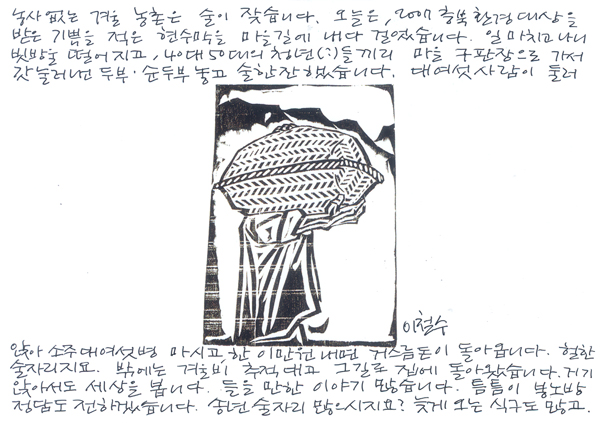 농사 없는 겨울 농촌은 술이 잦습니다. 오늘은, 2007 충북환경대상을
받은 기쁨을 적은 현수막을 마을길에 내다 걸었습니다. 일 마치고나니
빗방울 떨어지고, 40대 50대의 청년(?)들끼리 마을 구판장으로 가서
갓 눌러낸 두부·순두부 놓고 술한잔 했습니다. 대여섯 사람이 둘러
이철수
앉아 소주 대여섯병 마시고 한 이만원 내면 거스름돈이 돌아옵니다. 헐한
술자리지요. 밖에는 겨울비 추적대고 그길로 집에 돌아왔습니다. 거기
앉아서도 세상을 봅니다. 들을 만한 이야기 많습니다. 틈틈이 봉노방
정담도 전하겠습니다. 송년 술자리 많으시지요? 늦게 오는 식구도 많고.